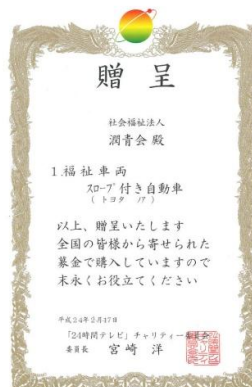 贈呈
社会福祉法人
潤青会 殿
1 福祉車両
スロープ付き自動車
(トヨタ ノア)
以上、贈呈いたします
全国の皆様から寄せられた
募金で購入していますので
末永くお役立てください
平成24年2月17日
「24時間テレビ」チャリティー委員会
委員長 宮崎 洋